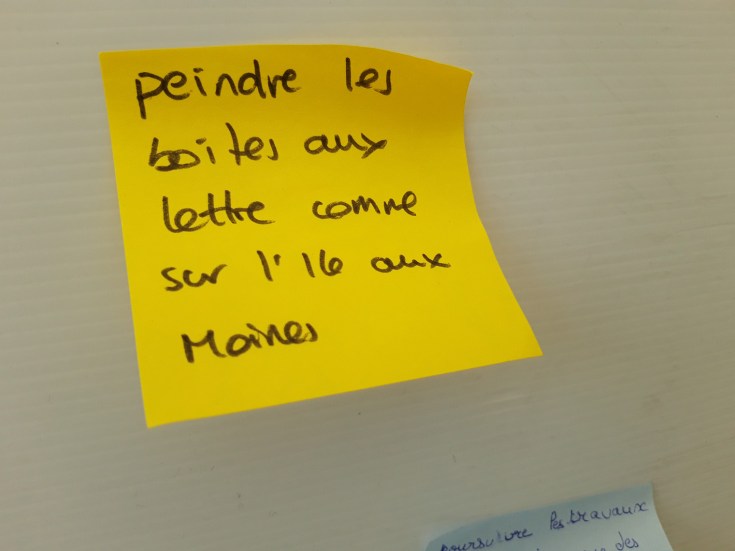 peindre les
boites aux
lettre comme
sur l'île aux
Moines
poursuivre les travaux
des